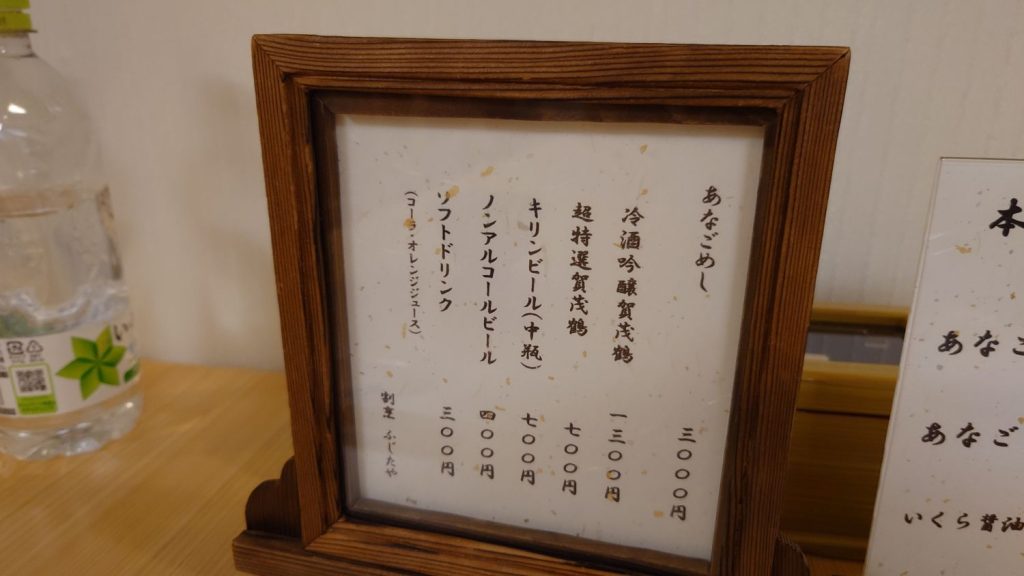 あなごめし 三〇〇〇円
冷酒吟醸賀茂鶴 一三〇〇円
超特選賀茂鶴 七〇〇円
キリンビール(中瓶) 七〇〇円
ノンアルコールビール 四〇〇円
ソフトドリンク 三〇〇円
(コーラ・オレンジジュース)
割烹 ふじたや
本
あなご
あなご
いくら醤油
い